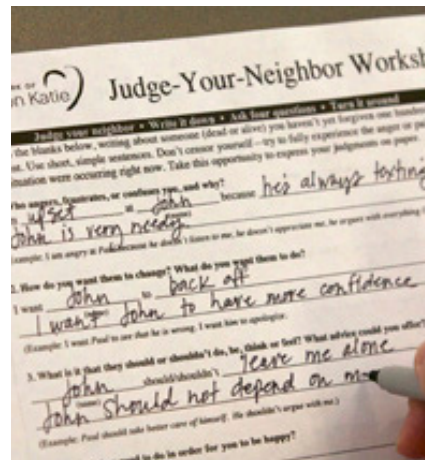 RK OF
n Katie
Judge-Your-Neighbor Worksh
Judge your neighbor • Write it down • Ask four questions • Turn it around
the blanks below, writing about someone (dead or alive) you haven't yet forgiven one hundred
nt. Use short, simple sentences. Don't censor yourself—try to fully experience the anger or pa
tuation were occurring right now. Take this opportunity to express your judgments on paper.
ho angers, frustrates, or confuses you, and why?
upset at John because he's always texting
(name)
John is very needy
ample: I am angry at Paul because he doesn't listen to me, he doesn't appreciate me, he argues with everything I
2. How do you want them to change? What do you want them to do?
I want John to back off
(name)
I want John to have more confidence
(Example: I want Paul to see that he is wrong. I want him to apologize.
3. What is it that they should or shouldn't do, be, think or feel? What advice could you offer?
John should/shouldn't leave me alone
(name)
John should not depend on m
(Example: Paul should take better care of himself. He shouldn't argue with me.)
ed to do in order for you to be happy?